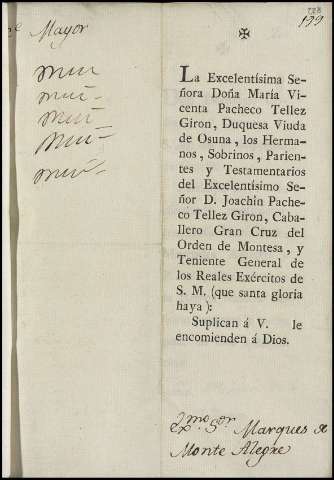 199
Mayor
✠
La Excelentísima Se-
ñora Doña María Vi-
centa Pacheco Tellez
Giron, Duquesa Viuda
de Osuna, los Herma-
nos, Sobrinos, Parien-
tes y Testamentarios
del Excelentísimo Se-
ñor D. Joachîn Pache-
co Tellez Giron, Caba-
llero Gran Cruz del
Orden de Montesa, y
Teniente General de
los Reales Exércitos de
S. M. (que santa gloria
haya):
Suplican á V. le
encomienden á Dios.
Exmo Sor Marques de
Monte Alegre